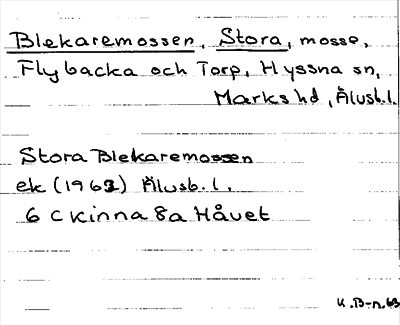 Blekaremossen, Stora, mosse,
Flybacka och Torp, Hyssna sn,
Marks hd, Älvsb. l.
Stora Blekaremossen
ek (1963) Älvsb. l.
6 C Kinna 8a Håvet
K. B-n. 63